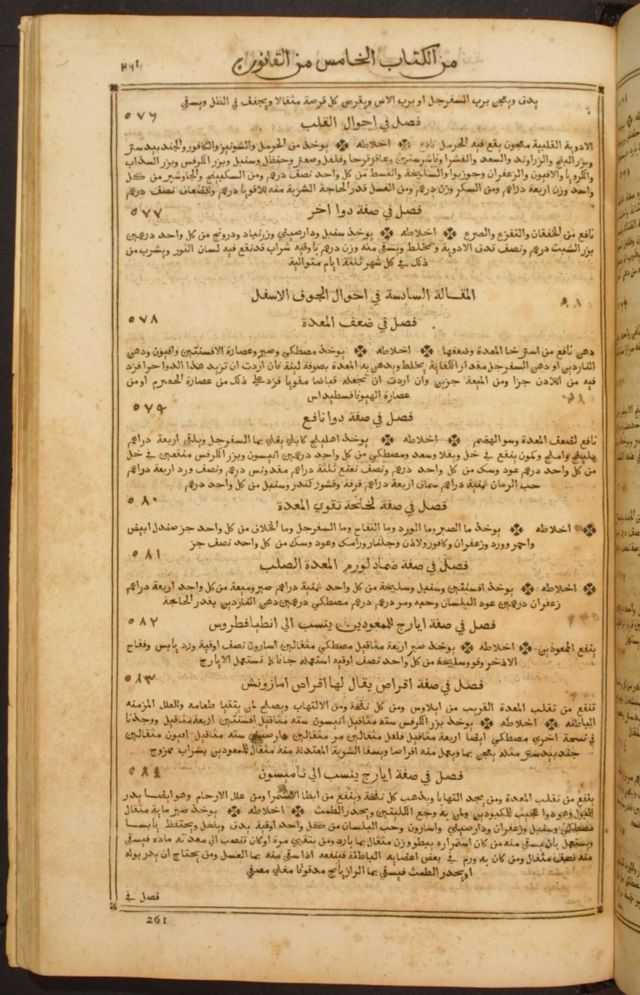 ٢٦١
من الكتاب الخامس من القانون
يدق ويعجن برب السفرجل او برب الاس ويقرص كل قرصة مثقالا ويجفف في الظل ويسقي
٥٧٦
فصل في احوال القلب
الادوية القلبية معجون يقع فيه الحرمل نافع اخلاطه يوخذ من الحرمل والشونيز والكافور والجندبيدستر
وبزر البنج والزراوند والسعد والفشرا وعاقرقرحا وفلفل وصعتر وحنظل وسنبل وبزر الكرفس وبزر السذاب
والافيون والزعفران وجوزبوا والسليخة والقسط من كل واحد نصف درهم ومن السكبينج والجاوشير من كل
واحد وزن اربعة دراهم ومن السكر وزن درهم ومن العسل قدر الحاجة الشربة منه للاقويا درهم وللضعفا نصف درهم
٥٧٧
فصل في صفة دوا اخر
نافع من الخفقان والتفزع والصرع اخلاطه يوخذ سنبل ودارصيني وزرنباد ودرونج من كل واحد درهمين
بزر الشبت درهم ونصف تدق الادوية وتخلط ويسقي منه وزن درهم باوقية شراب قد نقع فيه لسان الثور ويشرب من
ذلك في كل شهر ثلثة ايام متوالية
المقالة السادسة في احوال الجوف الاسفل
٥٧٨
فصل في ضعف المعدة
دهن نافع من استرخا المعدة وضعفها اخلاطه يوخذ مصطكي وصبر وعصارة الافسنتين وافيون ودهن
الناردين او دهن السفرجل مقدار الكفاية يخلط ويدهن به المعدة بصوفة لينة فان اردت ان تزيد هذا الدوا حرا فزد
فيه من اللادن جزا ومن الميعة جزين وان اردت ان تجعله قباضا مقويا فزد علي ذلك من عصارة الحصرم او من
عصارة الهيوفاقسطيداس
٥٧٩
فصل في صفة دوا نافع
نافع لضعف المعدة وسو الهضم اخلاطه يوخذ اهليلج كابلي يغلي بما السفرجل ويلقي اربعة دراهم
هليلج واملج وكمون ينقع في خل ويقلا وسعد ومصطكي من كل واحد درهمين انيسون وبزر الكرفس منقعين في خل
من كل واحد درهم عود وسك من كل واحد درهم ونصف نعنع ثلثة دراهم مقدونس درهم ونصف ورد اربعة دراهم
حب الرمان ثمنية دراهم سماق اربعة دراهم قرفة وقشور كندر وسنبل من كل واحد درهم
٥٨٠
فصل في صفة لخلخة تقوي المعدة
اخلاطه يوخذ ما الصبر وما الورد وما التفاح وما السفرجل وما الخلاف من كل واحد جز صندل ابيض
واحمر وورد وزعفران وكافور ولاذن وجلنار ورامك وعود وسك من كل واحد نصف جز
٥٨١
فصل في صفة ضماد لورم المعدة الصلب
اخلاطه يوخذ افسنتين وسنبل وسليخة من كل واحد ثمنية دراهم صبر وميعة من كل واحد اربعة دراهم
زعفران درهمين عود البلسان وحبه ومر درهم درهم مصطكي درهمين دهن الناردين بقدر الحاجة
٥٨٢
فصل في صفة ايارج للمعودين ينسب الي انطيبافطروس
ينفع الممعودين اخلاطه يوخذ صبر اربعة مثاقيل مصطكي مثقالين اسارون نصف اوقية ورد يابس وفقاح
الاذخر وفو وسليخة من كل واحد نصف اوقية استعمله جافا كما تستعمل الايارج
٥٨٣
فصل في صفة اقراص يقال لها اقراص امازونش
تنفع من تقلب المعدة القريب من ايلاوس ومن كل نفخة ومن الالتهاب ويصلح لمن يتقيا طعامه وللعلل المزمنه
الباطنه اخلاطه يوخذ بزر الكرفس سته مثاقيل انيسون سته مثاقيل افسنتين اربعة مثاقيل ووجدنا
في نسخة اخري مصطكي ايضا اربعة مثاقيل فلفل مثقالين مر مثقالين دارصيني سته مثاقيل افيون مثقالين
جندبيدستر مثله يعجن بما ويعمل منه اقراصا ويسقا الشربة المعتدلة منه مثقال للمعودين بشراب ممزوج
٥٨٤
فصل في صفة ايارج ينسب الي ثاميسون
ينفع من تقلب المعدة ومن يجد التهابا ويذهب كل نفخة وينفع من ابطا الاستمرا ومن علل الارحام وهو ايضا يدر
البول وهو دوا عجيب للكبودين ولمن به وجع الكليتين ويحدر الطمث اخلاطه يوخذ صبر ماية مثقال
مصطكي وسنبل وزعفران ودارصيني واسارون وحب البلسان من كل واحد اوقية يدق وينخل ويحتفظ يابسا
ويستعمل بان يسقي منه من كان استمراره يبطو وزن مثقال بما بارد ومن يتقيي مرة او كان تنصب الي معدته مادة فيسقي
منه نصف مثقال ومن كان به ورم في بعض اعضايه الباطنة فينفعه اذا سقي منه بما العسل ومن يحتاج ان يدر بوله
او يحدر الطمث فيسقي بما الرازيانج مدقوقا مغلي مصفي
فصل في
261